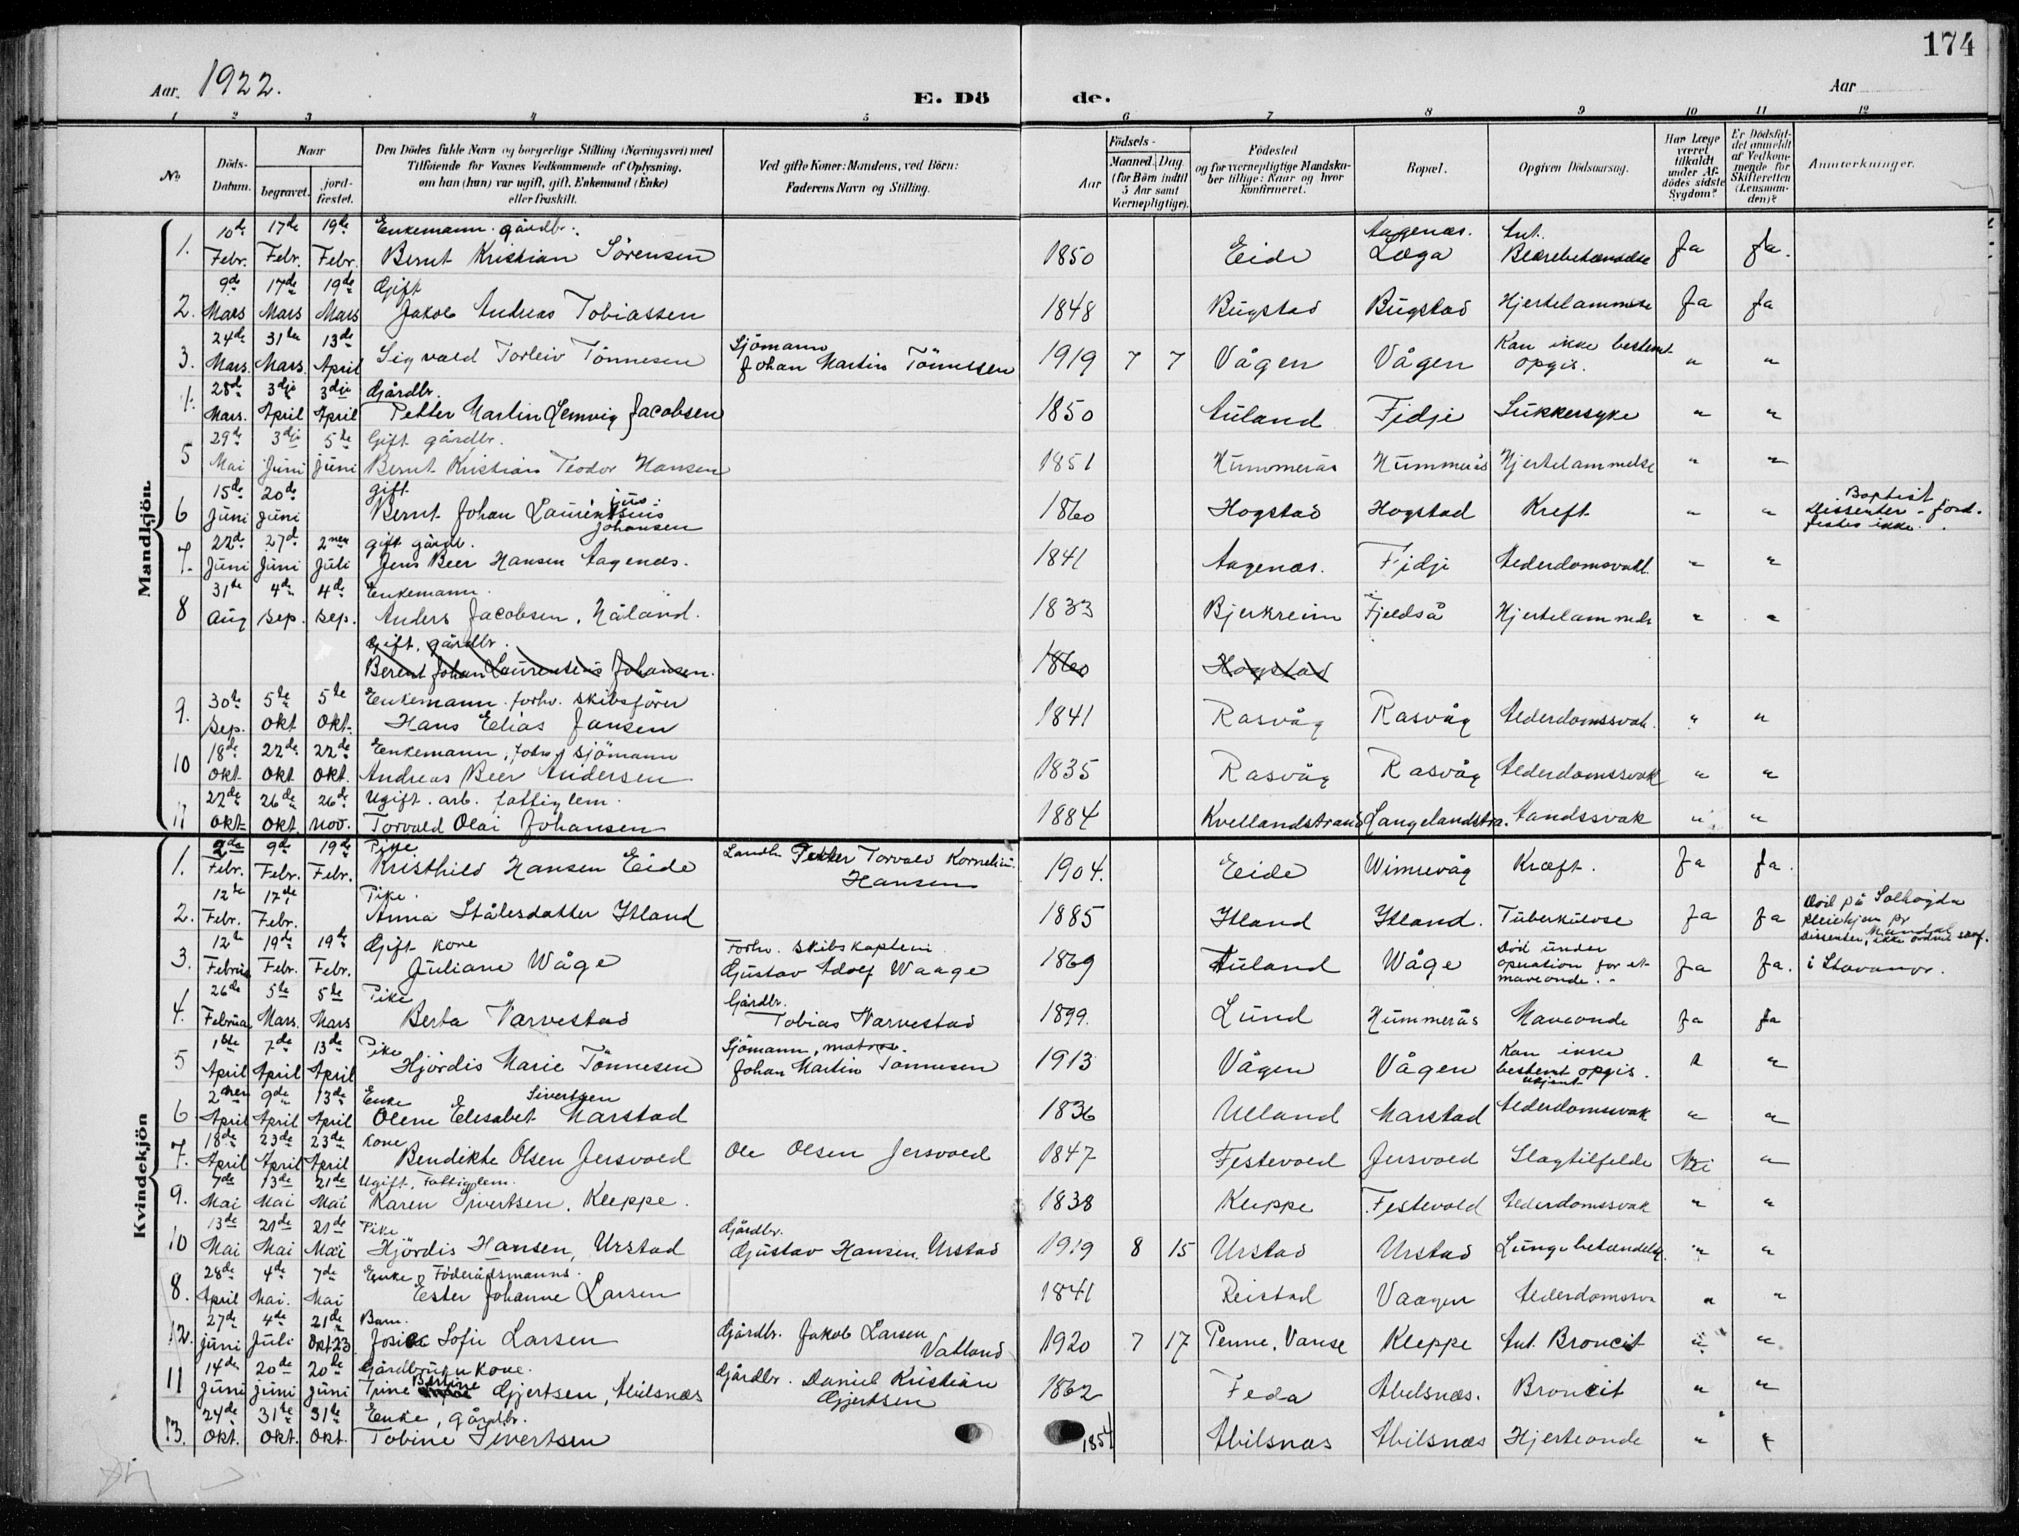 174
Aar 1922.
E. Dö de.
Aar
1 2 3 4 5 6 7 8 9 10 11 12
No.
Döds-Datum.
Naar
begravet.
jord-fæstet.
Den Dödes fulde Navn og borgerlige Stilling (Næringsvei) med Tilföiende for Voxnes Vedkommende af Oplysning, om han (hun) var ugift, gift, Enkemand (Enke) eller fraskilt.
Ved gifte Koner: Mandens, ved Börn: Faderens Navn og Stilling.
Födsels-
Aar
Maaned. Dag
(for Börn indtil 5 Aar samt Værnepligtige).
Födested og for værnepligtige Mandskaber tillige: Naar og hvor konfirmeret.
Bopæl.
Opgiven Dödsaarsag.
Har Læge været tilkaldt under Afdödes sidste Sygdom?
Er Dödsfaldet anmeldt af Vedkommende for Skifteretten (Lensmanden)?
Anmærkninger.
Mandkjön.
1. 10de Febr. 17de Febr. 19de Febr. Enkemann. gårdbr. Bernt Kristian Sörensen 1850 Eide Aagenæs. Læga Ant. Blærebetændelse Ja Ja.
2. 9de Mars 17de Mars 19de Mars Gift Jakob Andreas Tobiassen 1848 Bugstad Bugstad Hjertelammelse Ja Ja
3. 24de Mars. 31te Mars. 13de April Sigvald Torleiv Tönnesen Sjömann Johan Martin Tönnesen 1919 7 7 Vågen Vågen Kan ikke bestemt opgis. " "
4. 28de Mars. 3dje April 3dje April Gårdbr. Petter Martin Lemvig Jacobsen 1850 Auland Fidje Sukkersyke " "
5 29de Mai 3dje Juni 5te Juni Gift gårdbr. Bernt Kristian Teodor Hansen 1851 Hummerås Hummerås Hjertelammelse " "
6 15de Juni 20de Juni gift Bernt Johan Laurentsius ius. Johansen 1860 Hogstad Hogstad Kreft " " Baptist Dissenter - jordfestes ikke.
7. 22de Juni 27de Juni 2nen Juli gift gårdb. Jens Beer Hansen Aagenæs. 1841 Aagenæs. Fidje Alderdomsvakl. " "
8 31te Aug 4de Sep. 4de Sep. Enkemann. Anders Jacobsen, Håland. 1833 Bjerkreim Fjeldså Hjertelammelse " "
Gift. gårdbr. Berent Johan Laurentsius Johansen. 1860 Hogstad
9. 30te Sep. 5te Okt 5te Okt. Enkemann. forhv. skibsförer Hans Elias Jansen 1841 Rasvåg Rasvåg Alderdomssvak. " "
10 18de Okt 22de Okt 22de Okt. Enkemann, forhv sjömann Andreas Beer Andersen 1835 Rasvåg Rasvåg Alderdomssvak " "
11 22de Okt 26de Okt 26de Nov. Ugift. arb. fattiglem. Torvald Olai Johansen 1884 Kvellandstrand Langelandstra. Aandssvak " "
Kvindekjön
1. 2de Febr. 9de Febr. 19de Febr. Pike Kristhild Hansen Eide Landh. Petter Torvald Kornelius. Hansen 1904. Eide Wimrevåg Kræft. Ja Ja.
2. 12te Febr. 17de Febr. Pike. Anna Stålesdatter Itland 1885 Itland Itland. Tuberkulose Ja Ja Död på Solhögda pleiehjem pr Mandal Dissenter, ikke ordnet skif.
3. 12te Februar 19de Febr. 19de Febr. Gift kone Juliane Wåge Forhv. skibskaptein Gustav Adolf Waage 1869 Auland Wåge Död under operation for et maveonde. Ja Ja. i Stavanger.
4. 26de Februar 5te Mars. 5te Mars Pike Berta Varvestad Gårdbr. Tobias Varvestad 1899. Lund Hummerås Maveonde Ja Ja
5 1ste April 7de April 13de April Pike Hjördis Marie Tönnesen Sjömann, matros. Johan Martin Tönnesen 1913 Vågen Vågen Kan ikke bestemt opgis. ukjent " "
6 2nen April 9de April 13de April Enke Olene Elisabet Sivertsen Marstad 1836 Ulland Marstad Alderdomssvak " "
7. 18de April 23de April 23de April Kone Bendikte Olsen Jersvold Ole Olsen Jersvold 1847 Festevold Jersvold Slagtilfelde Nei "
9. 7de Mai 13de Mai 21de Mai Ugift. Fattiglem. Karen Sivertsen, Kleppe. 1838 Kleppe Festevold Alderdomssvak " "
10 13de Mai 21de Mai 21de Mai Pike Hjördis Hansen, Urstad Gårdbr. Gustav Hansen Urstad 1919 8 15 Urstad Urstad Lungebetændelse " "
8. 28de April 4de Mai. 7de Mai Enke, Föderådsmanns. Ester Johanne Larsen 1841 Reistad Vaagen Alderdomssva " "
12. 27de Juni 4de Juli 21de Okt 23 Barn. Josie Sofie Larsen Gårdbr. Jakob Larsen Vatland 1920 7 17 Penne, Vanse Kleppe Ant. Broncit " "
11 14de Juni 20de Juni 20de Juni Gårdbruker kone. Trine Bertine Gjertsen, Abilsnæs Gårdbr. Daniel Kristian Gjertsen 1862 Feda Abelsnæs. Broncit " "
13. 24de Okt. 31te Okt. 31te Okt. Enke, gårdbr. Tobine Sivertsen 1854 Abilsnæs Abilsnæs Hjerteonde " "